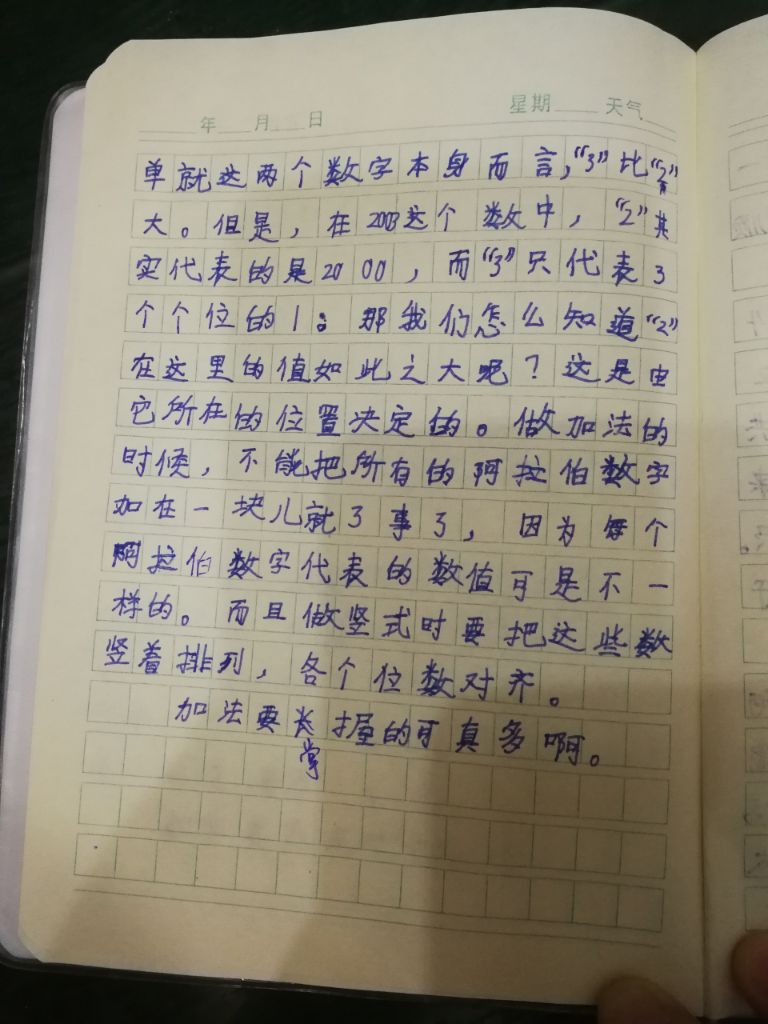 年 月 日 星期 天气
单就这两个数字本身而言，“3”比“2”
大。但是，在2003这个数中，“2”其
实代表的是2000，而“3”只代表3
个个位的1。那我们怎么知道“2”
在这里的值如此之大呢？这是由
它所在的位置决定的。做加法的
时候，不能把所有的阿拉伯数字
加在一块儿就了事了，因为每个
阿拉伯数字代表的数值可是不一
样的。而且做竖式时要把这些数
竖着排列，各个位数对齐。
加法要长握的可真多啊。
掌